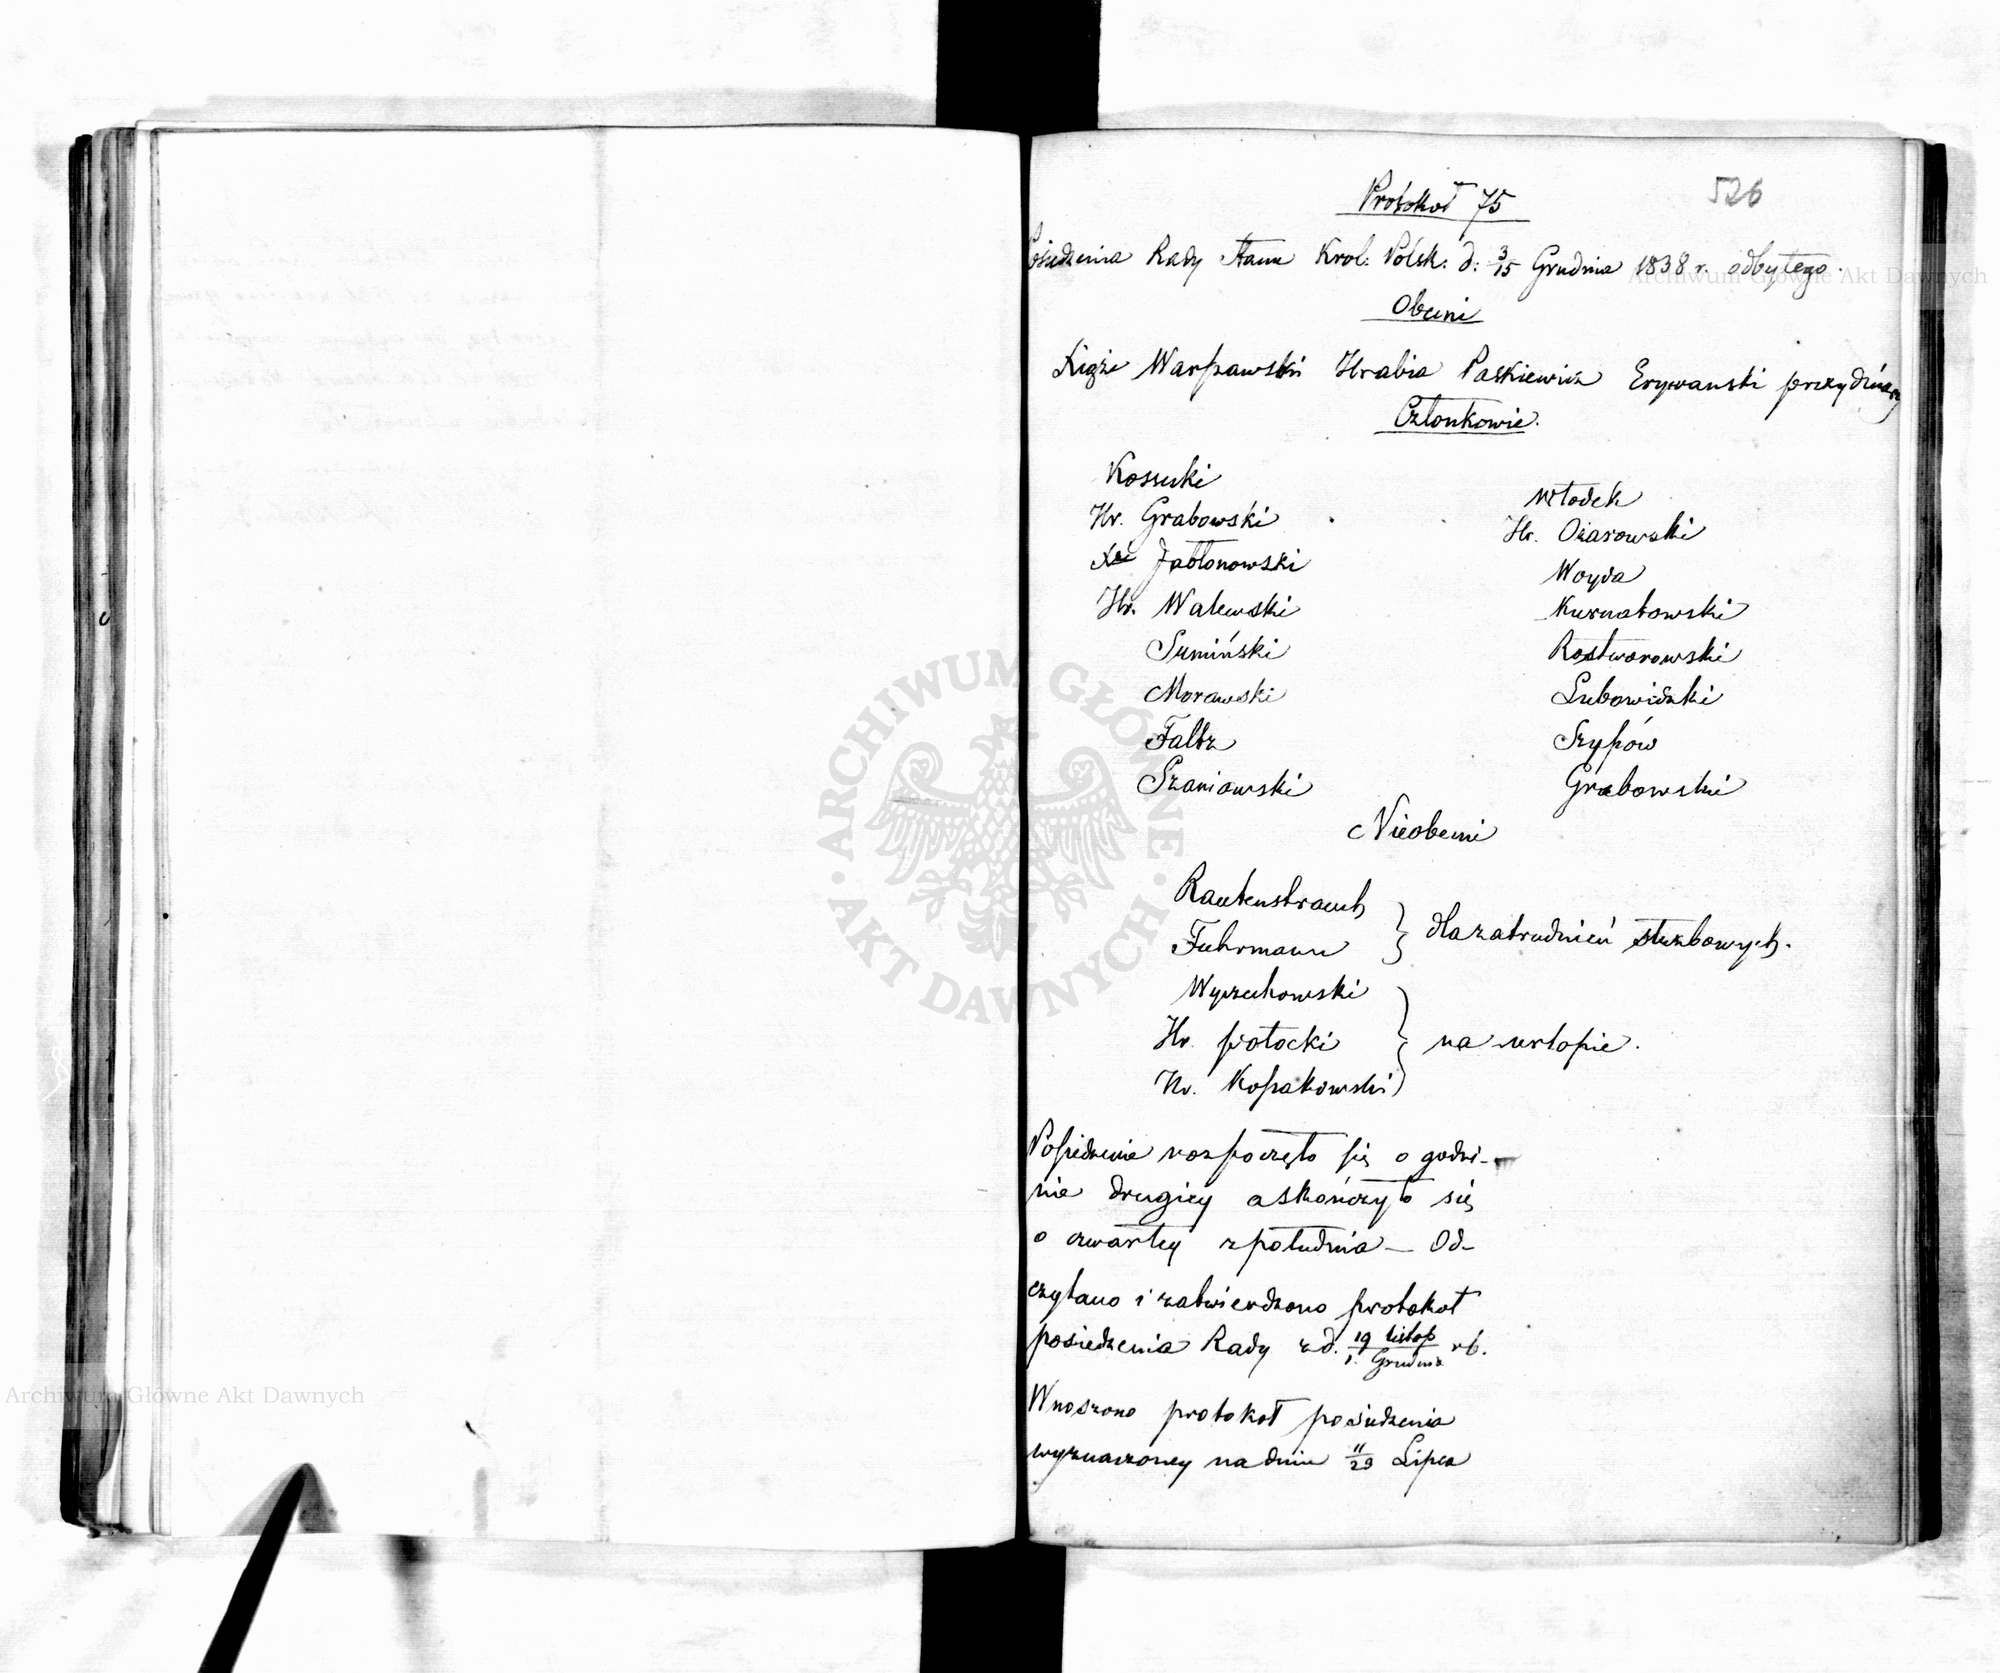 Protokoł 75
526
Posiedzenia Rady Stanu Krol: Polsk. d: 3/15 Grudnia 1838 r. odbytego.
Obecni
Xiąże Warszawski Hrabia Paskiewicz Erywanski prezyduiący
Członkowie.
Kossecki
Hr. Grabowski
Xże Jabłonowski
Hr. Walewski
Sumiński
Morawski
Faltz
Szaniawski
Włodek
Hr. Ożarowski
Woyda
Kurnatowski
Rostworowski
Lubowidzki
Szypów
Grabowski
Nieobecni
Rautenstrauch
Fuhrmann
} dla zatrudnień służbowych.
Wyczechowski
Hr. Potocki
Hr. Kossakowski
} na urlopie.
Posiedzenie rozpoczęło się o godzi-
nie drugiey a skończyło się
o czwartey z południa — Od-
czytano i zatwierdzono protokoł
posiedzenia Rady z d. 19 Listop/1. Grudnia rb.
Wnoszono protokoł posiedzenia
wyznaczoney na dniu 11/23 Lipca
ARCHIWUM GŁÓWNE AKT DAWNYCH
Archiwum Główne Akt Dawnych
Archiwum Główne Akt Dawnych